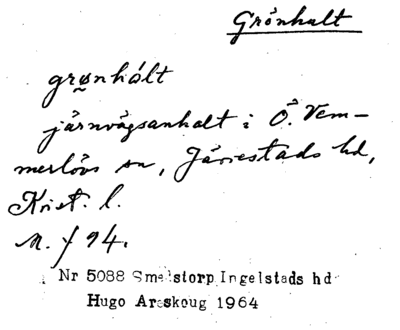 Grönhult
grø̰nhált
järnvägsanhalt i Ö. Vem-
merlövs sn, Järrestads hd,
Krist. l.
M. f 94.
Nr 5088 Smedstorp Ingelstads hd
Hugo Areskoug 1964